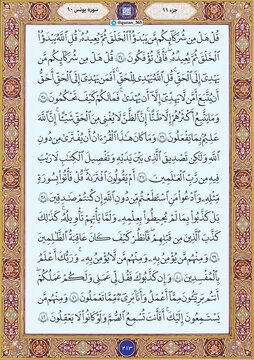 جزء ۱۱
@quran_365
سوره یونس ۱۰
قُلْ هَلْ مِن شُرَكَآئِكُم مَّن يَبْدَؤُا۟ ٱلْخَلْقَ ثُمَّ يُعِيدُهُۥ قُلِ ٱللَّهُ يَبْدَؤُا۟
ٱلْخَلْقَ ثُمَّ يُعِيدُهُۥ فَأَنَّىٰ تُؤْفَكُونَ ﴿٣٤﴾ قُلْ هَلْ مِن شُرَكَآئِكُم مَّن
يَهْدِىٓ إِلَى ٱلْحَقِّ قُلِ ٱللَّهُ يَهْدِى لِلْحَقِّ أَفَمَن يَهْدِىٓ إِلَى ٱلْحَقِّ أَحَقُّ
أَن يُتَّبَعَ أَمَّن لَّا يَهِدِّىٓ إِلَّآ أَن يُهْدَىٰ فَمَا لَكُمْ كَيْفَ تَحْكُمُونَ ﴿٣٥﴾
وَمَا يَتَّبِعُ أَكْثَرُهُمْ إِلَّا ظَنًّا إِنَّ ٱلظَّنَّ لَا يُغْنِى مِنَ ٱلْحَقِّ شَيْـًٔا إِنَّ ٱللَّهَ
عَلِيمٌۢ بِمَا يَفْعَلُونَ ﴿٣٦﴾ وَمَا كَانَ هَـٰذَا ٱلْقُرْءَانُ أَن يُفْتَرَىٰ مِن دُونِ
ٱللَّهِ وَلَـٰكِن تَصْدِيقَ ٱلَّذِى بَيْنَ يَدَيْهِ وَتَفْصِيلَ ٱلْكِتَـٰبِ لَا رَيْبَ
فِيهِ مِن رَّبِّ ٱلْعَـٰلَمِينَ ﴿٣٧﴾ أَمْ يَقُولُونَ ٱفْتَرَىٰهُ قُلْ فَأْتُوا۟ بِسُورَةٍ
مِّثْلِهِۦ وَٱدْعُوا۟ مَنِ ٱسْتَطَعْتُم مِّن دُونِ ٱللَّهِ إِن كُنتُمْ صَـٰدِقِينَ ﴿٣٨﴾
بَلْ كَذَّبُوا۟ بِمَا لَمْ يُحِيطُوا۟ بِعِلْمِهِۦ وَلَمَّا يَأْتِهِمْ تَأْوِيلُهُۥ كَذَٰلِكَ
كَذَّبَ ٱلَّذِينَ مِن قَبْلِهِمْ فَٱنظُرْ كَيْفَ كَانَ عَـٰقِبَةُ ٱلظَّـٰلِمِينَ
﴿٣٩﴾ وَمِنْهُم مَّن يُؤْمِنُ بِهِۦ وَمِنْهُم مَّن لَّا يُؤْمِنُ بِهِۦ وَرَبُّكَ أَعْلَمُ
بِٱلْمُفْسِدِينَ ﴿٤٠﴾ وَإِن كَذَّبُوكَ فَقُل لِّى عَمَلِى وَلَكُمْ عَمَلُكُمْ
أَنتُم بَرِيٓـُٔونَ مِمَّآ أَعْمَلُ وَأَنَا۠ بَرِىٓءٌ مِّمَّا تَعْمَلُونَ ﴿٤١﴾ وَمِنْهُم مَّن
يَسْتَمِعُونَ إِلَيْكَ أَفَأَنتَ تُسْمِعُ ٱلصُّمَّ وَلَوْ كَانُوا۟ لَا يَعْقِلُونَ ﴿٤٢﴾
٢١٣